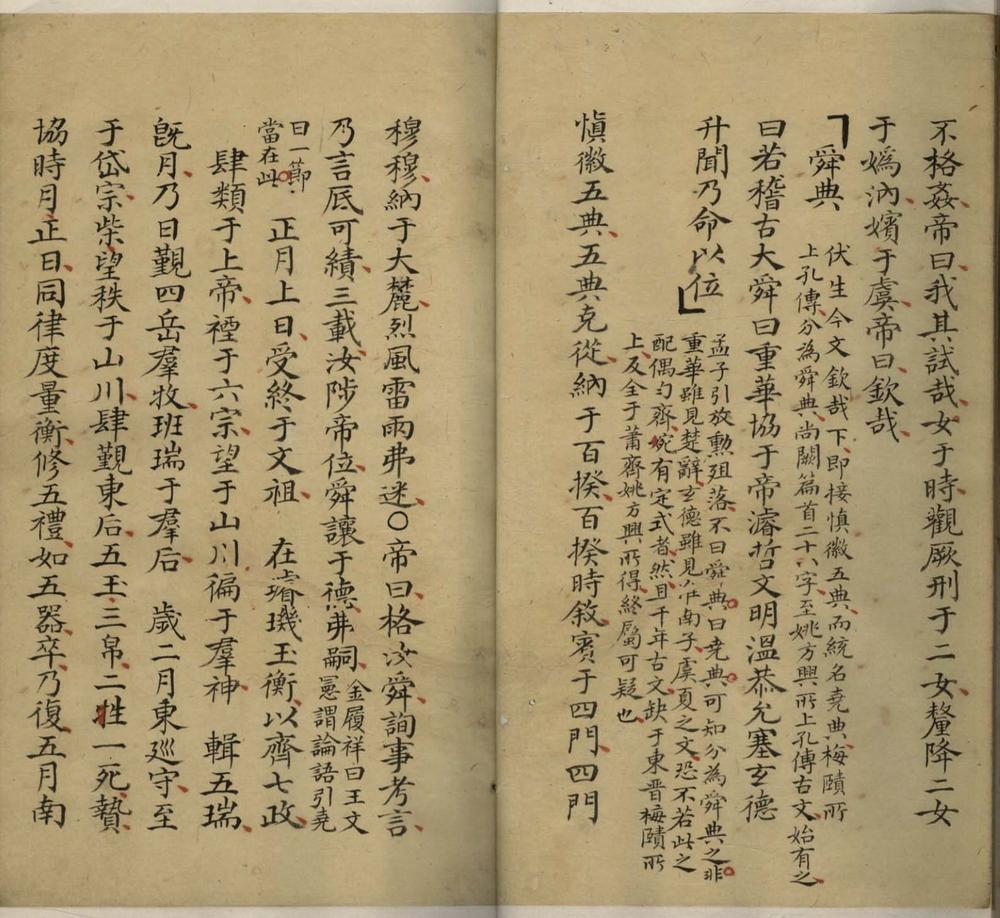 不格姦帝曰我其試哉女于時觀厥刑于二女釐降二女
于嬀汭嬪于虞帝曰欽哉
舜典
伏生今文欽哉下即接慎徽五典而統名堯典梅賾所
上孔傳分為舜典尚闕篇首二十八字至姚方興所上孔傳古文始有之
曰若稽古大舜曰重華協于帝濬哲文明溫恭允塞玄德
升聞乃命以位
孟子引放勳殂落不曰舜典曰堯典可知分為舜典之非
重華雖見楚辭玄德雖見淮南子虞夏之文恐不若此之
配偶勻齊宛有定式者然且千年古文缺于東晋梅賾所
上及全于蕭齊姚方興所得終屬可疑也
慎徽五典五典克從納于百揆百揆時敘賓于四門四門
穆穆納于大麓烈風雷雨弗迷〇帝曰格汝舜詢事考言
乃言厎可績三載汝陟帝位舜讓于德弗嗣
金履祥曰王文
憲謂論語引堯
曰一節
當在此
正月上日受終于文祖 在璿璣玉衡以齊七政
肆類于上帝禋于六宗望于山川徧于羣神 輯五瑞
旣月乃日覲四岳羣牧班瑞于羣后 歲二月東巡守至
于岱宗柴望秩于山川肆覲東后五玉三帛二牲一死贄
協時月正日同律度量衡修五禮如五器卒乃復五月南